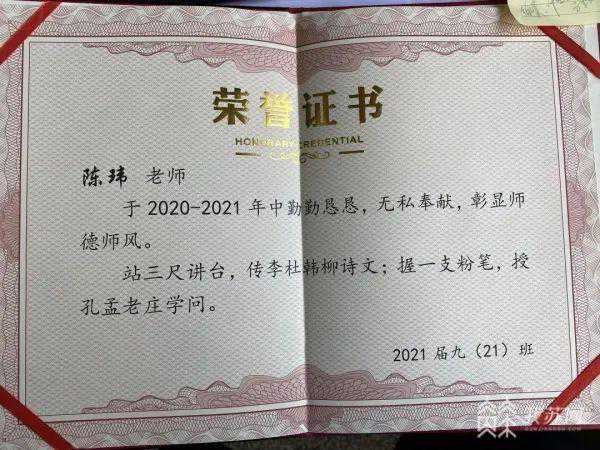 荣誉证书
HONORARY CREDENTIAL
陈玮 老师
于 2020-2021 年中勤勤恳恳，无私奉献，彰显师
德师风。
站三尺讲台，传李杜韩柳诗文；握一支粉笔，授
孔孟老庄学问。
2021 届九（21）班